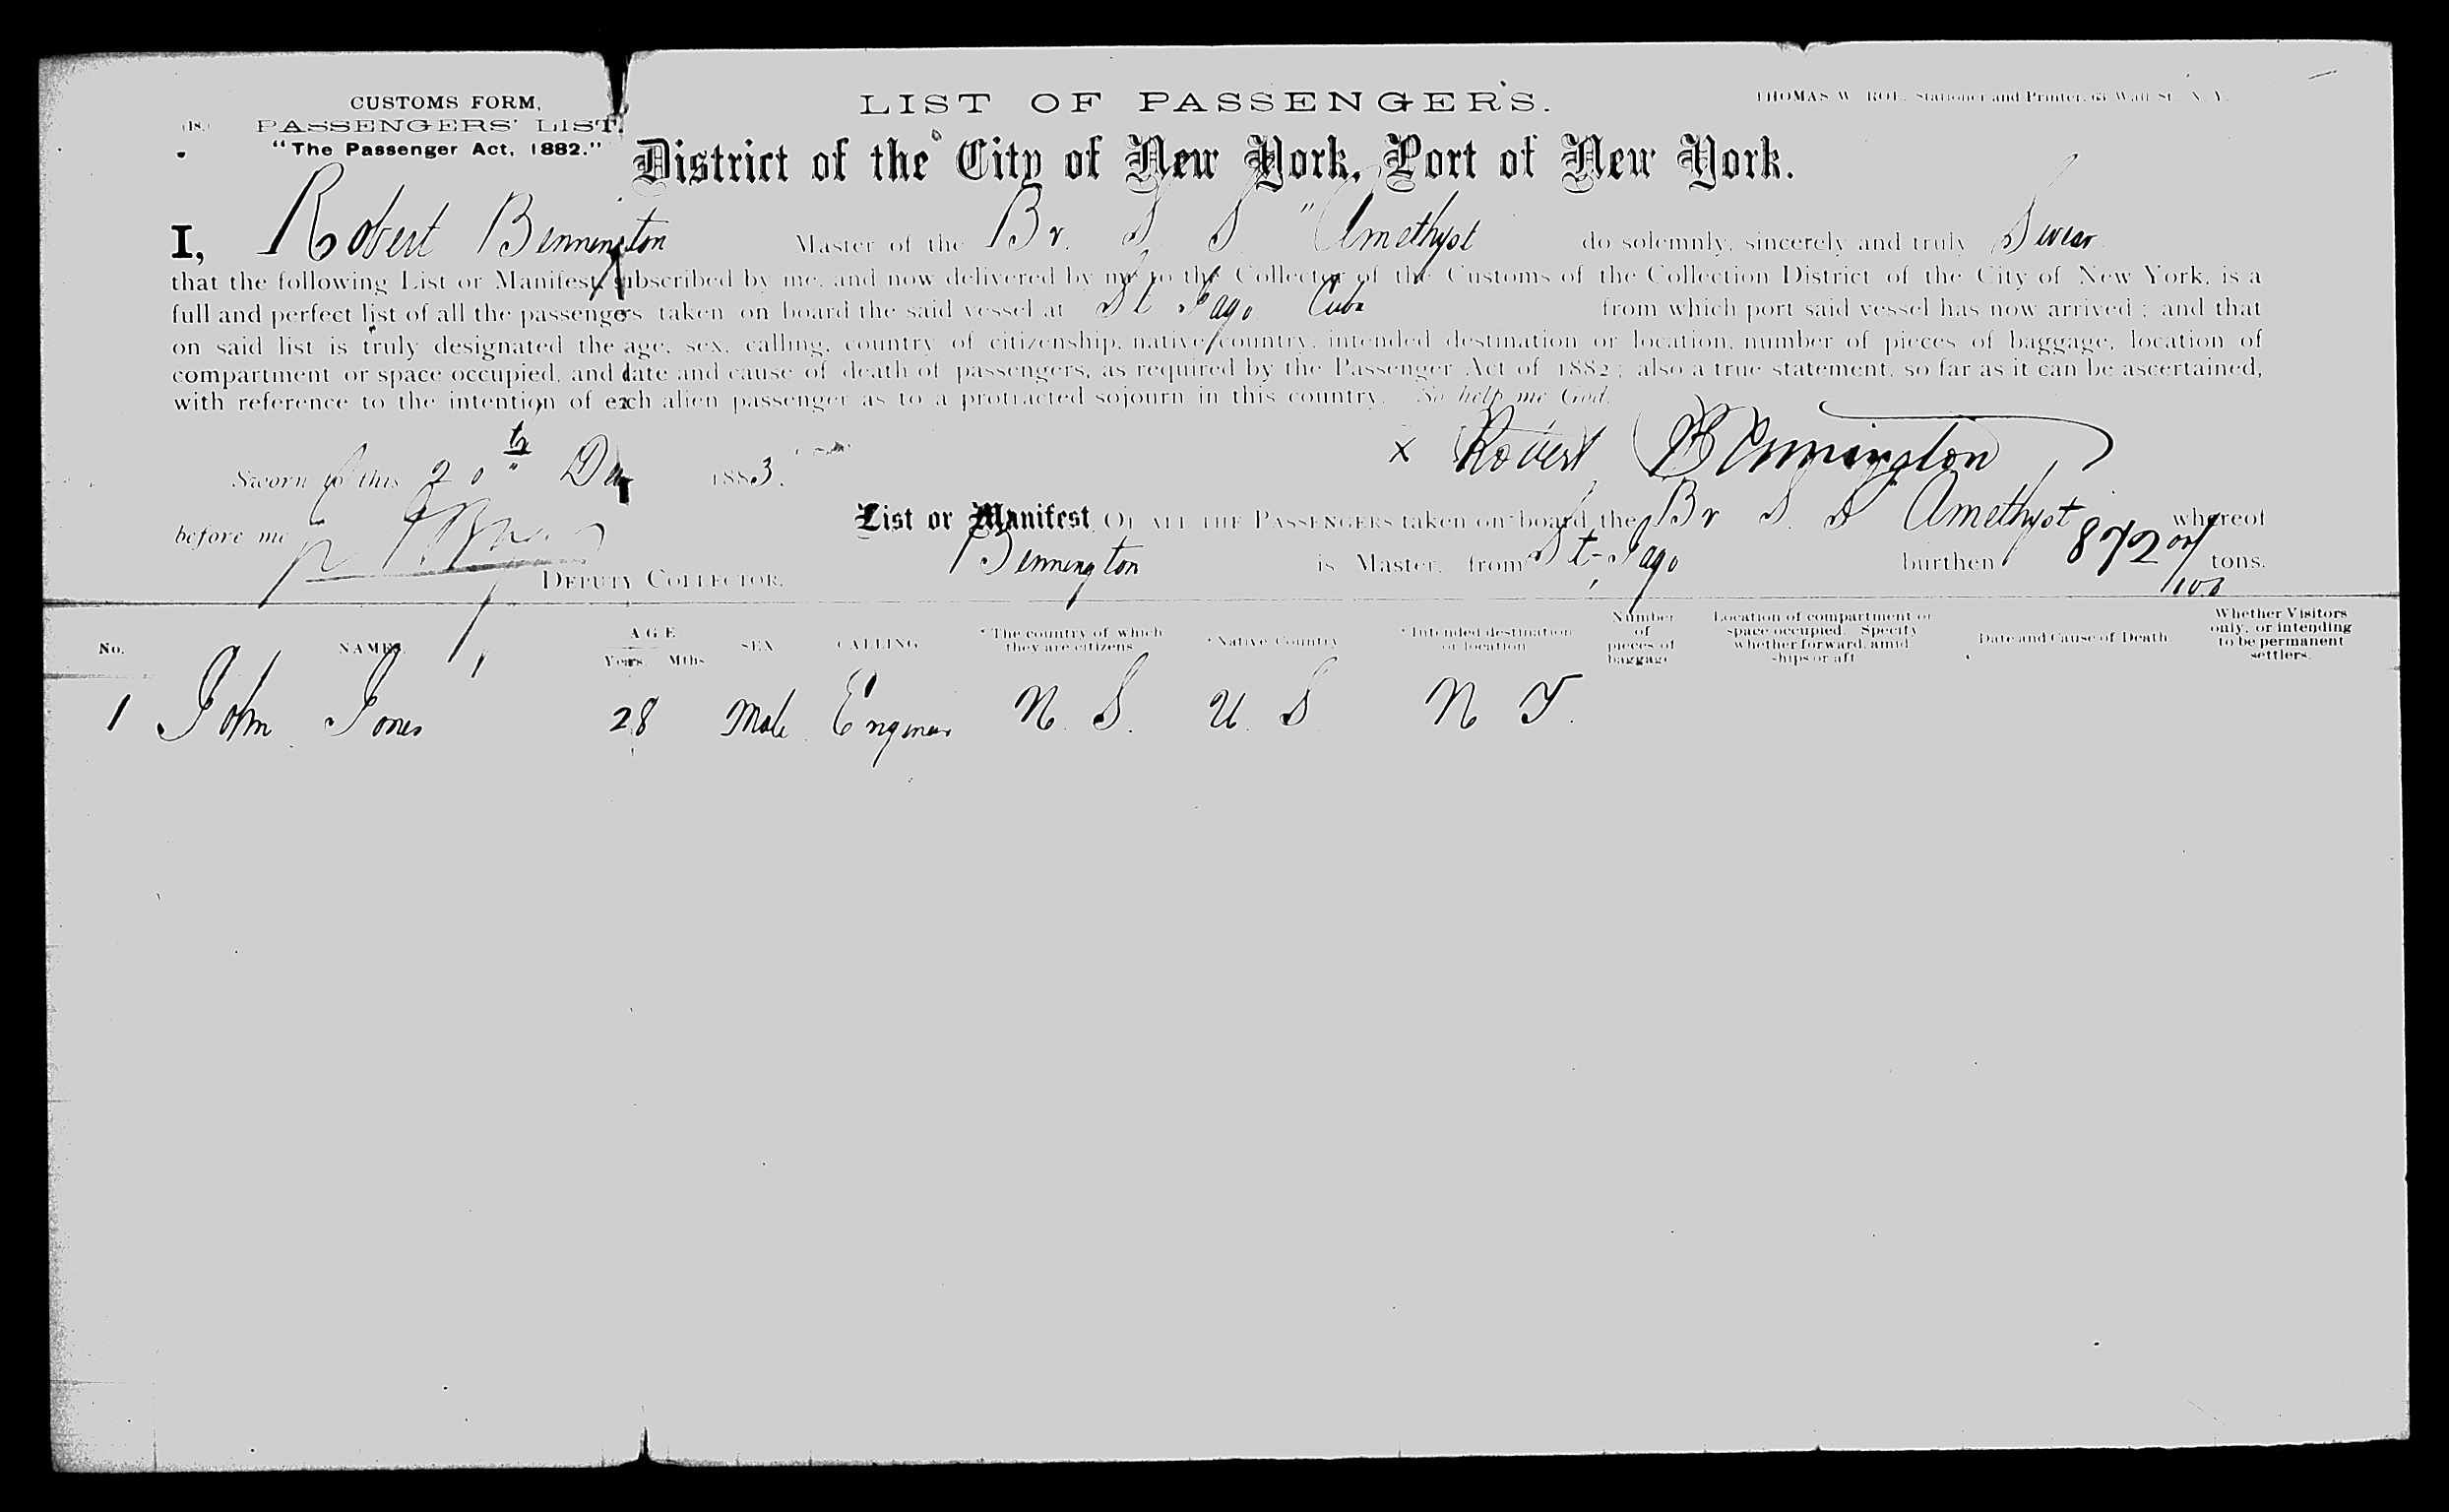 (18.)
CUSTOMS FORM,
PASSENGERS' LIST.
"The Passenger Act, 1882."
LIST OF PASSENGERS.
THOMAS W. ROE, Stationer and Printer, 63 Wall St. N. Y.
District of the City of New York, Port of New York.
I, Robert Bennington Master of the Br. S S "Amethyst do solemnly, sincerely and truly Swear
that the following List or Manifest, subscribed by me, and now delivered by me to the Collector of the Customs of the Collection District of the City of New York, is a
full and perfect list of all the passengers taken on board the said vessel at St Jago Cuba from which port said vessel has now arrived; and that
on said list is truly designated the age, sex, calling, country of citizenship, native country, intended destination or location, number of pieces of baggage, location of
compartment or space occupied, and date and cause of death of passengers, as required by the Passenger Act of 1882; also a true statement, so far as it can be ascertained,
with reference to the intention of each alien passenger as to a protracted sojourn in this country. So help me God.
Sworn to this 20th 1883.
x Robert Bennington
before me
DEPUTY COLLECTOR.
List or Manifest, OF ALL THE PASSENGERS taken on board the Br S. S Amethyst whereof
Bennington is Master, from St Jago burthen 872 tons.
No. NAMES. AGE Years. Mths. SEX CALLING *The country of which they are citizens *Native Country *Intended destination or location Number of pieces of baggage Location of compartment or space occupied. Specify whether forward, amidships or aft Date and Cause of Death. Whether Visitors only, or intending to be permanent settlers.
1 John Jones 28 Male Engineer U. S. U. S N Y.